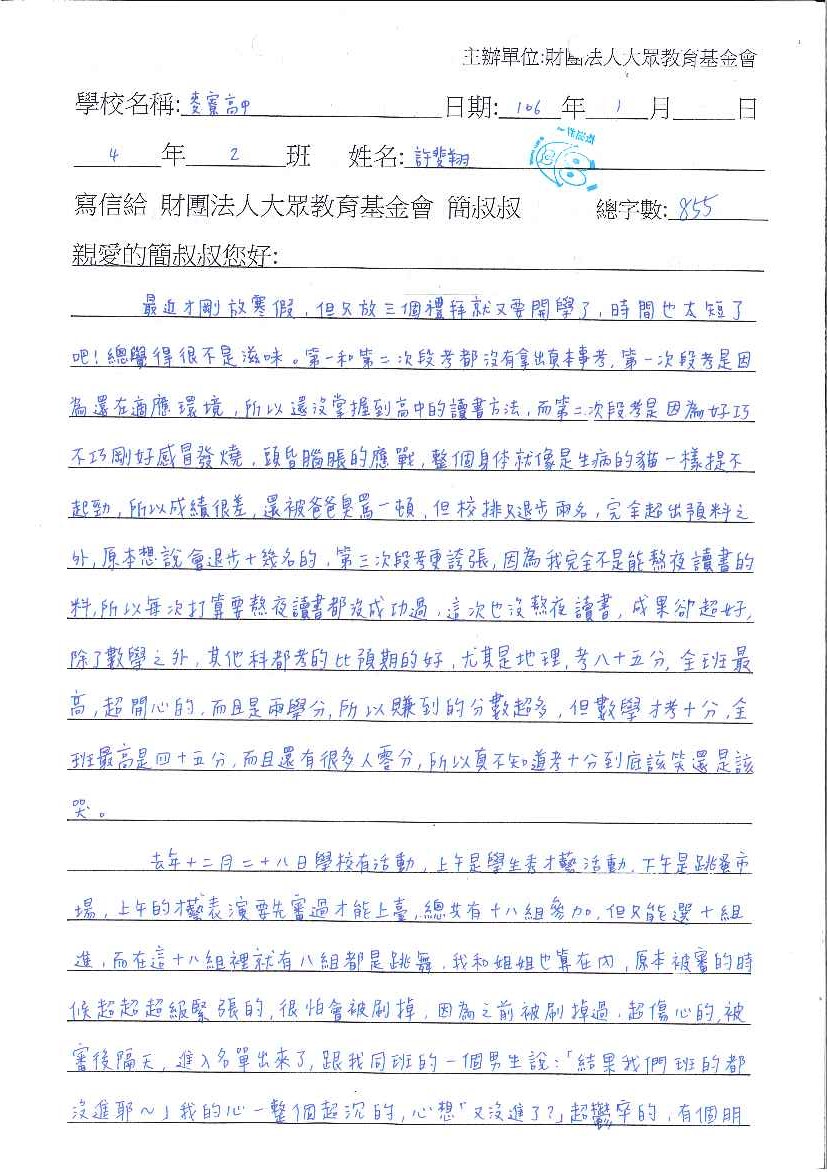 主辦單位:財團法人大眾教育基金會
學校名稱:麥寮高中 日期: 106 年 1 月 日
4 年 2 班 姓名: 許斐翔
寫信給 財團法人大眾教育基金會 簡叔叔 總字數: 855
親愛的簡叔叔您好:
最近才剛放寒假,但只放三個禮拜就又要開學了,時間也太短了
吧!總覺得很不是滋味。第一和第二次段考都沒有拿出真本事考,第一次段考是因
為還在適應環境,所以還沒掌握到高中的讀書方法,而第二次段考是因為好巧
不巧剛好感冒發燒,頭昏腦脹的應戰,整個身体就像是生病的貓一樣提不
起勁,所以成績很差,還被爸爸臭罵一頓,但校排只退步兩名,完全超出預料之
外,原本想說會退步十幾名的,第三次段考更誇張,因為我完全不是能熬夜讀書的
料,所以每次打算要熬夜讀書都沒成功過,這次也沒熬夜讀書,成果卻超好,
除了數學之外,其他科都考的比預期的好,尤其是地理,考八十五分,全班最
高,超開心的,而且是兩學分,所以賺到的分數超多,但數學才考十分,全
班最高是四十五分,而且還有很多人零分,所以真不知道考十分到底該笑還是該
哭。
去年十二月二十八日學校有活動,上午是學生秀才藝活動,下午是跳蚤市
場,上午的才藝表演要先審過才能上臺,總共有十八組參加,但只能選十組
進,而在這十八組裡就有八組都是跳舞,我和姐姐也算在內,原本被審的時
候超超超級緊張的,很怕會被刷掉,因為之前被刷掉過,超傷心的,被
審後隔天,進入名單出來了,跟我同班的一個男生說:「結果我們班的都
沒進耶～」我的心一整個超沉的,心想「又沒進了?」超鬱卒的,有個朋